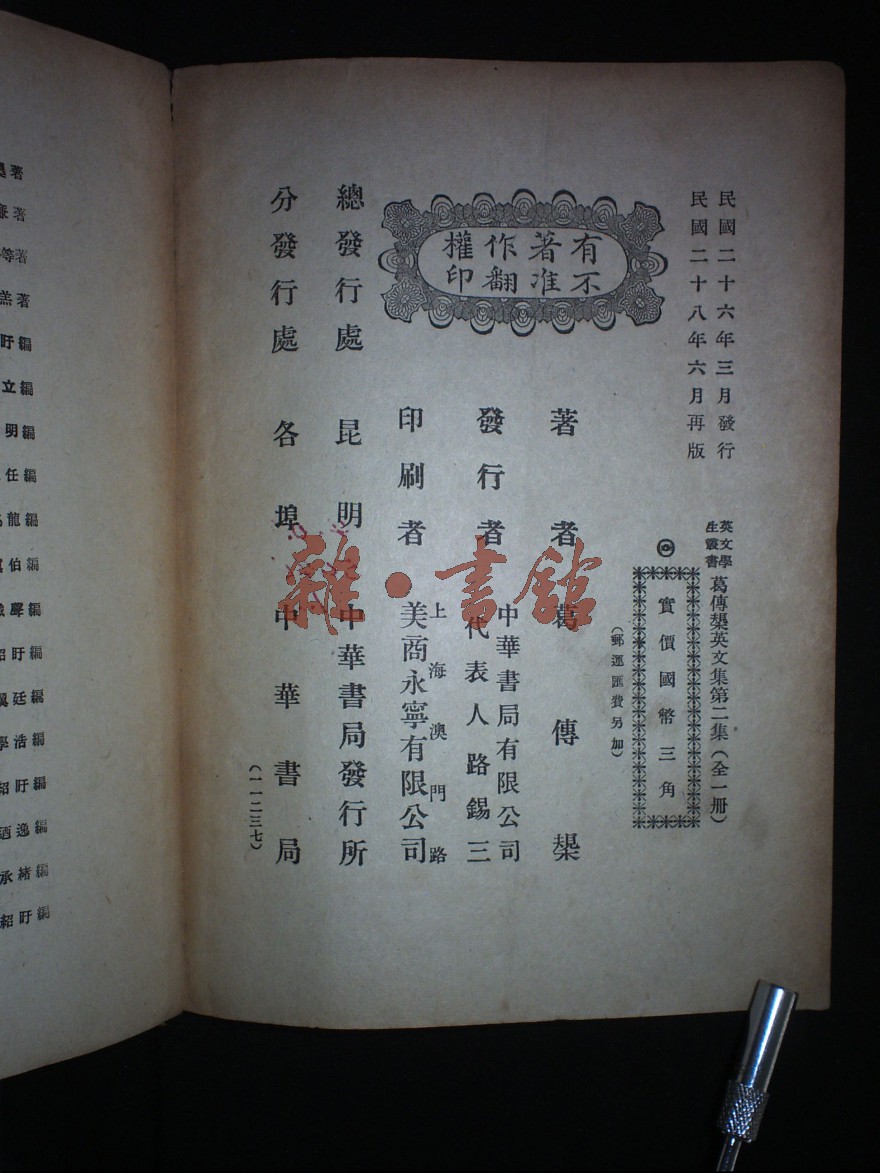 民國二十六年三月發行
民國二十八年六月再版
英文學
生叢書
葛傳槼英文集第二集（全一冊）
◎實價國幣三角
（郵運匯費另加）
有不
著准
作翻
權印
著者 葛傳槼
發行者 中華書局有限公司
代表人路錫三
印刷者 上海澳門路
美商永寧有限公司
總發行處 昆明 中華書局發行所
分發行處 各埠中華書局
（一一二三七）
雜·書館
著
著
等著
羔著
盱編
立編
明編
任編
龍編
伯編
聲編
盱編
廷編
浩編
紹盱編
逸編
承緒編
紹盱編